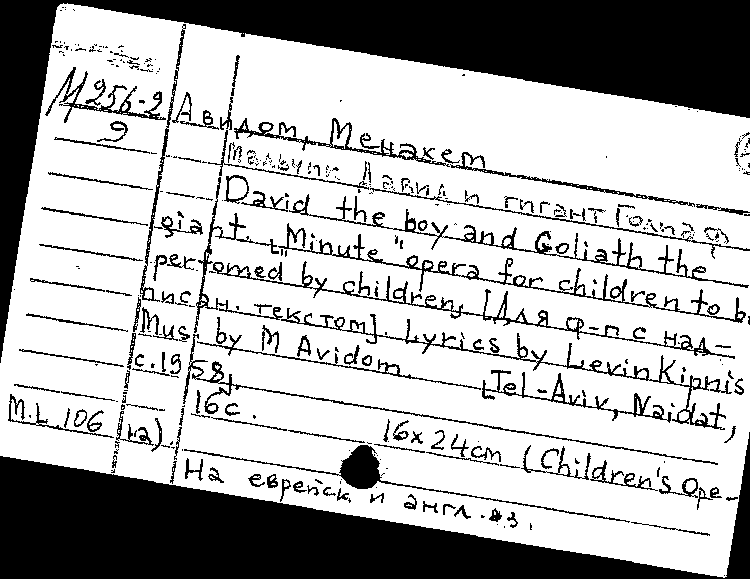 М256-2
9
Авидом, Менахем
Мальчик Давид и гигант Голиаф
David the boy and Goliath the
giant. "Minute" opera for children to be
perfomed by children, [Для ф-п с над-
писан. текстом]. Lyrics by Levin Kipnis
Mus. by M Avidom. [Tel-Aviv, Naidat,
c.1958].
16 с. 16x24cm (Children's Ope-
M.L. 106 на).
На еврейск и англ. яз.